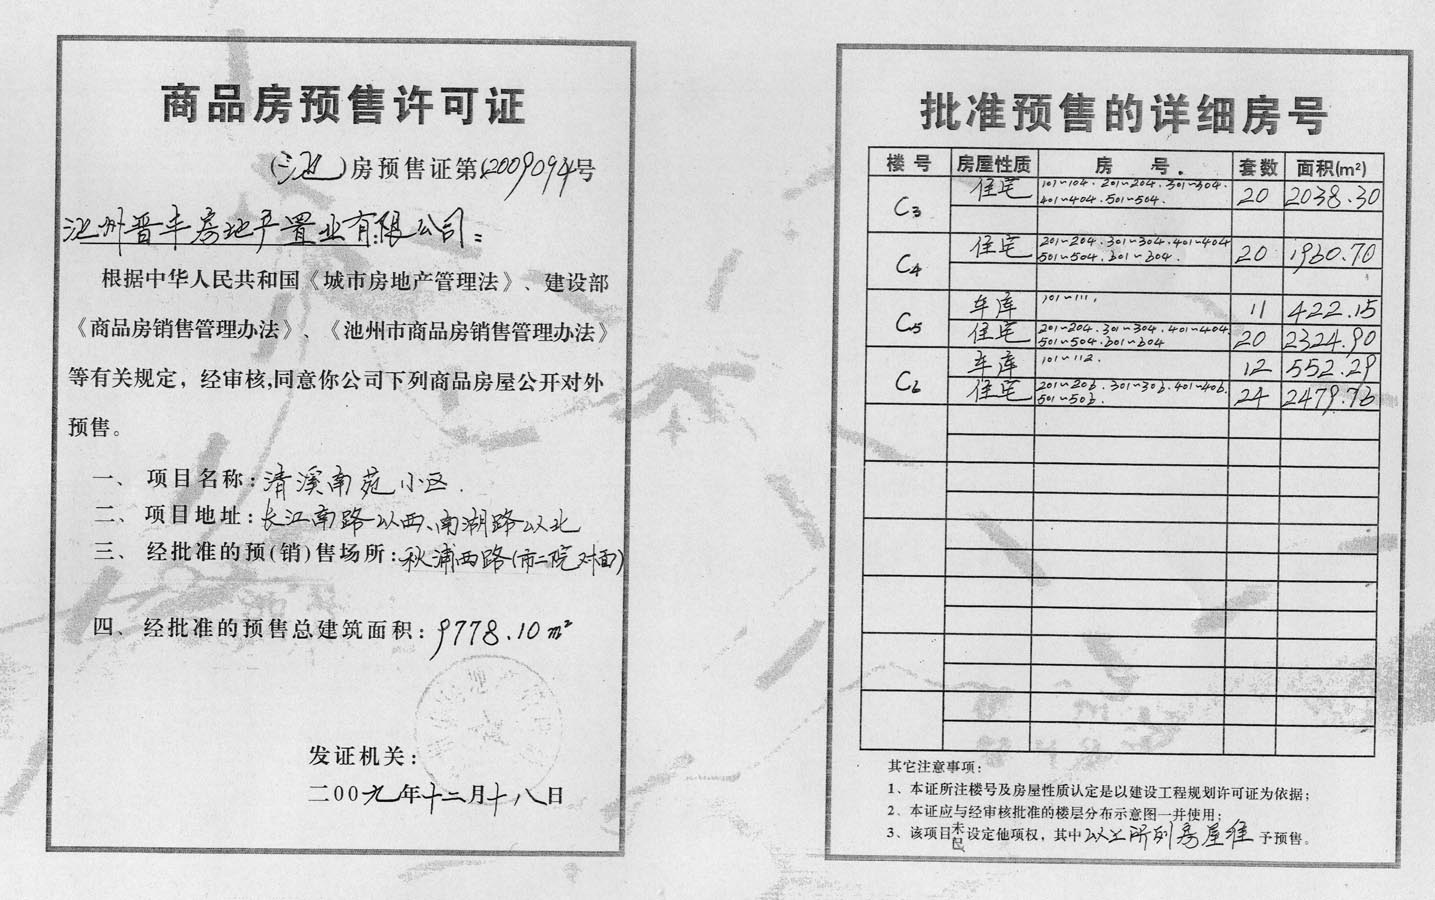 商品房预售许可证
(池)房预售证第(2009094号
池州晋丰房地产置业有限公司:
根据中华人民共和国《城市房地产管理法》、建设部
《商品房销售管理办法》、《池州市商品房销售管理办法》
等有关规定，经审核,同意你公司下列商品房屋公开对外
预售。
一、项目名称:清溪南苑小区.
二、项目地址:长江南路以西、南湖路以北
三、经批准的预(销)售场所:秋浦西路(市二院对面)
四、经批准的预售总建筑面积:9778.10m²
发证机关:
二00九年十二月十八日
批准预售的详细房号
楼号 房屋性质 房号. 套数 面积(m²)
C3 住宅 101~104.201~204.301~304. 20 2038.30
401~404.501~504.
C4 住宅 201~204.301~304.401~404 20 1960.70
501~504.601~604.
C5 车库 101~111. 11 422.15
住宅 201~204.301~304.401~404 20 2324.90
501~504.601~604
C6 车库 101~112. 12 552.29
住宅 201~206.301~306.401~406. 24 2479.76
501~506.
其它注意事项:
1、本证所注楼号及房屋性质认定是以建设工程规划许可证为依据;
2、本证应与经审核批准的楼层分布示意图一并使用;
3、该项目未已设定他项权，其中以上所列房屋准予预售。